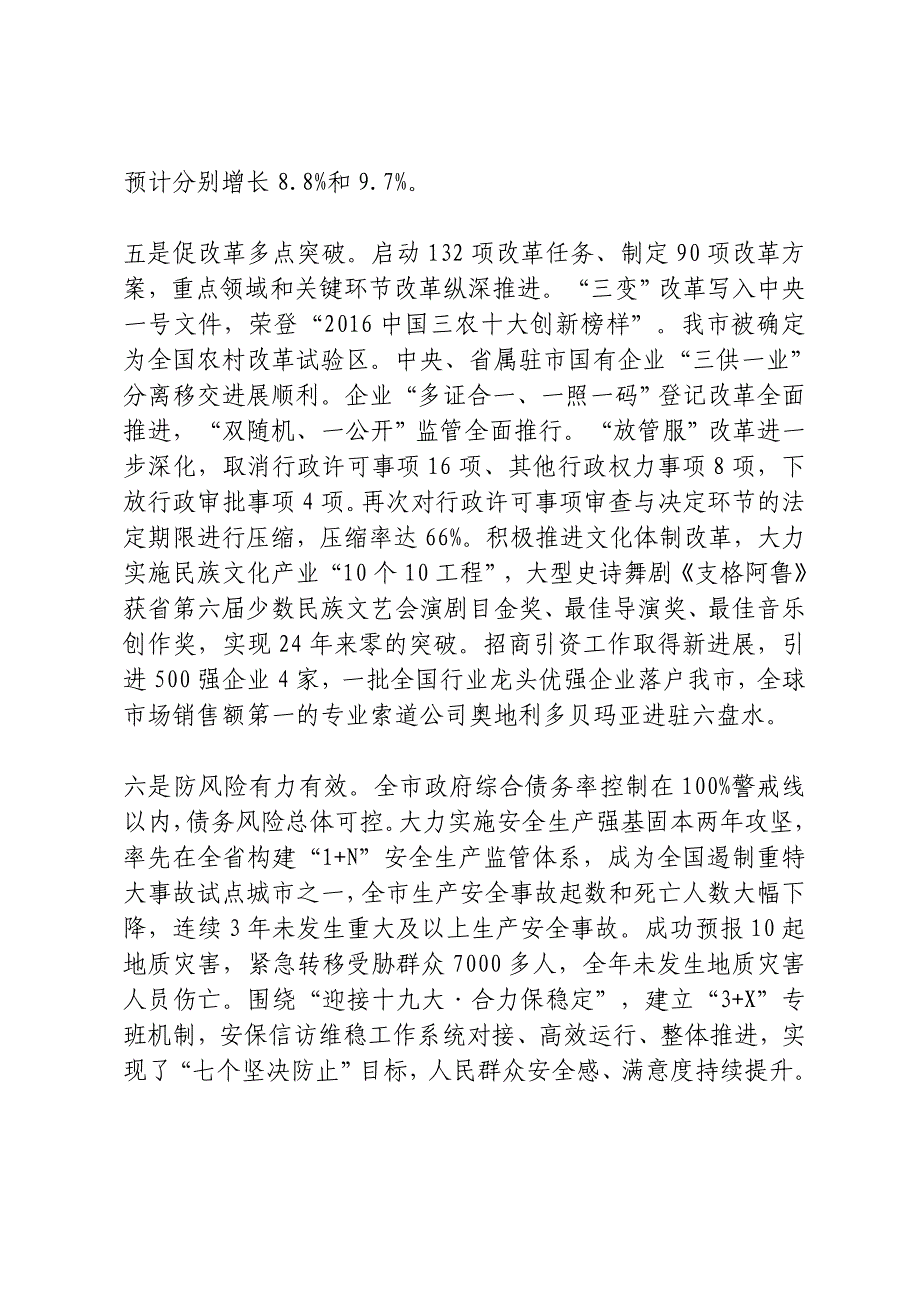 预计分别增长 8.8%和 9.7%。
五是促改革多点突破。启动 132 项改革任务、制定 90 项改革方
案，重点领域和关键环节改革纵深推进。“三变”改革写入中央
一号文件，荣登“2016 中国三农十大创新榜样”。我市被确定
为全国农村改革试验区。中央、省属驻市国有企业“三供一业”
分离移交进展顺利。企业“多证合一、一照一码”登记改革全面
推进，“双随机、一公开”监管全面推行。“放管服”改革进一
步深化，取消行政许可事项 16 项、其他行政权力事项 8 项，下
放行政审批事项 4 项。再次对行政许可事项审查与决定环节的法
定期限进行压缩，压缩率达 66%。积极推进文化体制改革，大力
实施民族文化产业“10 个 10 工程”，大型史诗舞剧《支格阿鲁》
获省第六届少数民族文艺会演剧目金奖、最佳导演奖、最佳音乐
创作奖，实现 24 年来零的突破。招商引资工作取得新进展，引
进 500 强企业 4 家，一批全国行业龙头优强企业落户我市，全球
市场销售额第一的专业索道公司奥地利多贝玛亚进驻六盘水。
六是防风险有力有效。全市政府综合债务率控制在 100%警戒线
以内，债务风险总体可控。大力实施安全生产强基固本两年攻坚，
率先在全省构建“1+N”安全生产监管体系，成为全国遏制重特
大事故试点城市之一，全市生产安全事故起数和死亡人数大幅下
降，连续 3 年未发生重大及以上生产安全事故。成功预报 10 起
地质灾害，紧急转移受胁群众 7000 多人，全年未发生地质灾害
人员伤亡。围绕“迎接十九大·合力保稳定”，建立“3+X”专
班机制，安保信访维稳工作系统对接、高效运行、整体推进，实
现了“七个坚决防止”目标，人民群众安全感、满意度持续提升。